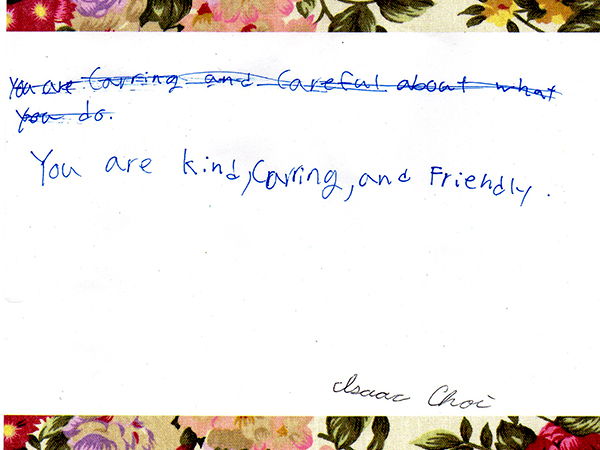 You are Carring and Careful about what
you do.
You are kind, Carring, and Friendly.
Isaac Choi